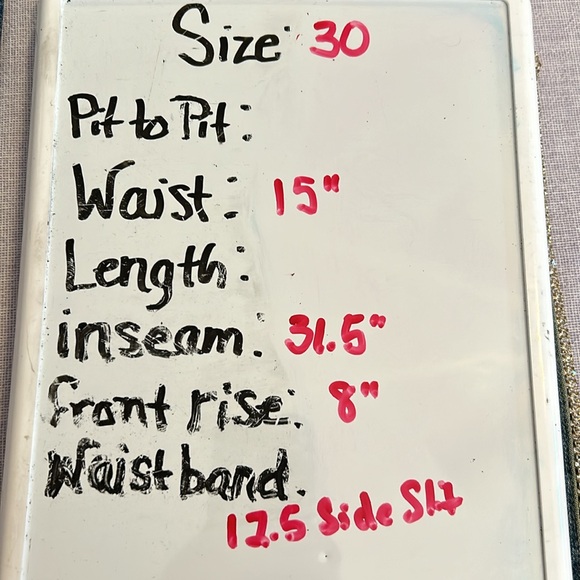 Size: 30
Pit to Pit:
Waist: 15"
Length:
inseam: 31.5"
front rise: 8"
Waist band.
12.5 Side Slit